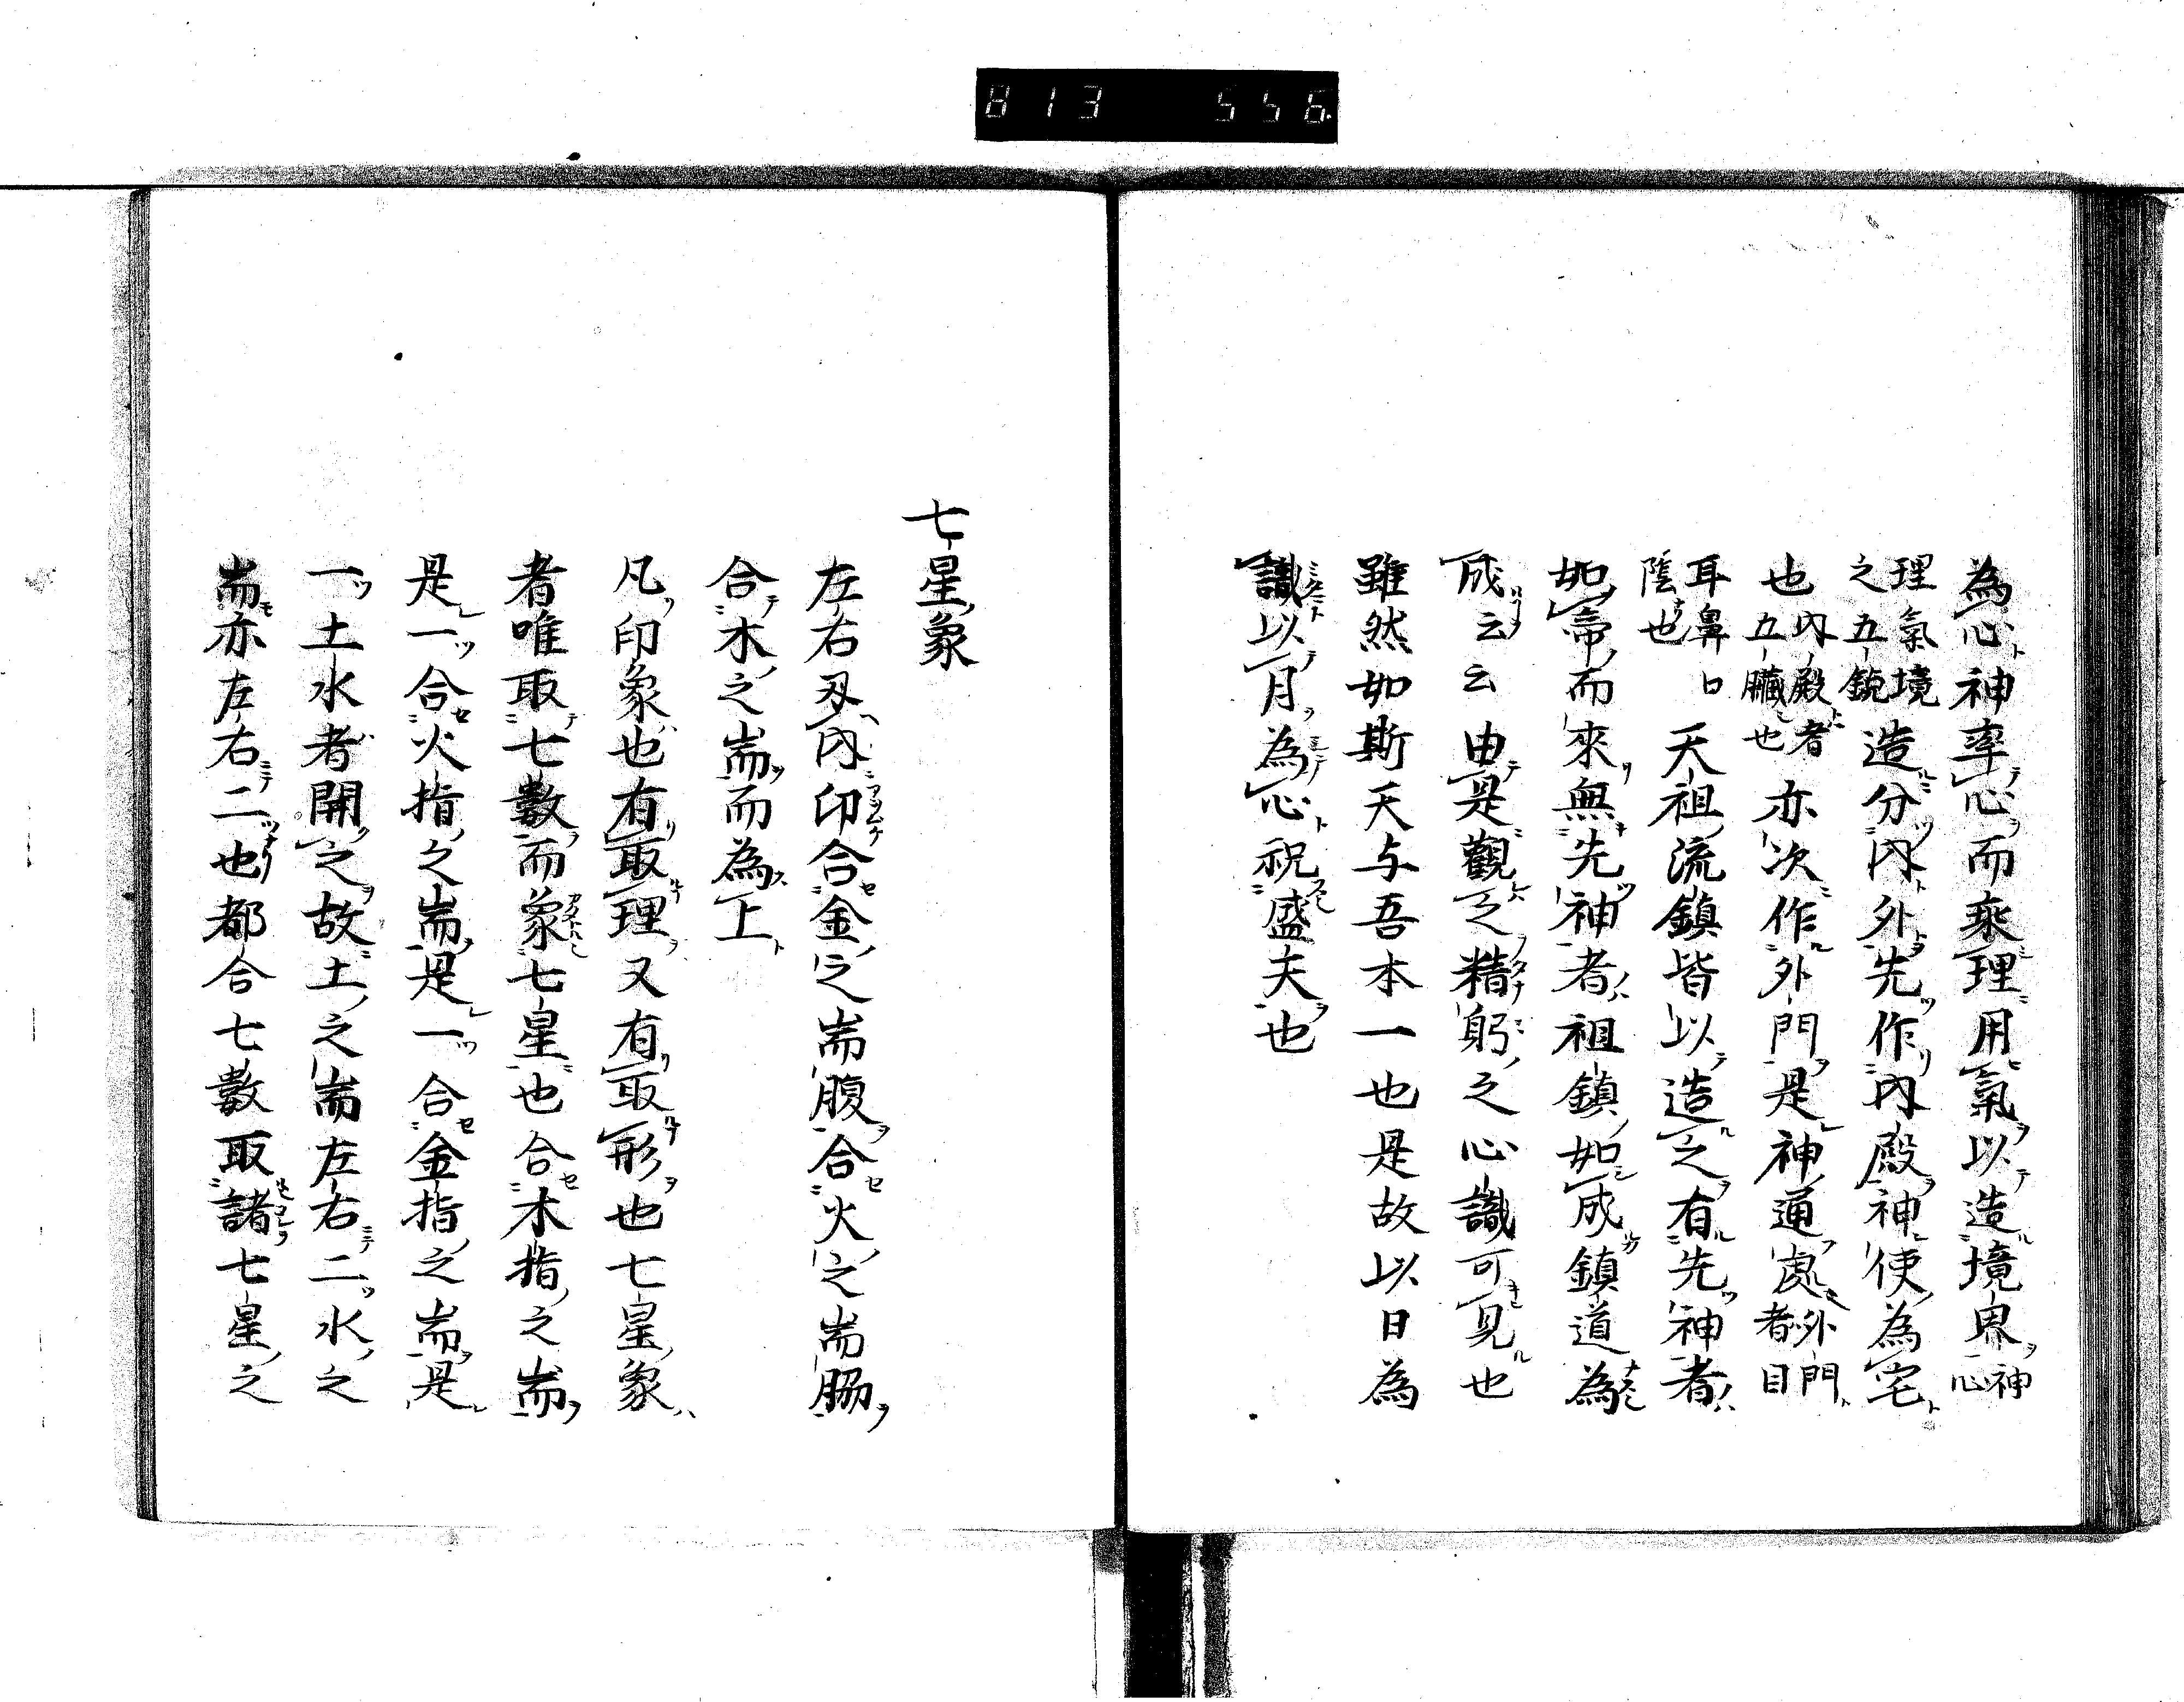 813 556
為心神率心而乗理用氣以造境界神心
理氣境之五鏡造分内外先作内殿神使為宅
也内殿者五臓也亦次作外門是神通處外門者目
耳鼻口陰也天祖流鎮皆以造之有先神者
如帝而來無先神者祖鎮如成鎮道為
成云云由是觀之精躬之心識可見也
雖然如斯天与吾本一也是故以日為
識以月為心祝盛夫也
七星象
左右刄内印合金之耑腹合火之耑腸
合木之耑而為上
凡印象也有取理又有取形也七星象
者唯取七數而象七星也合木指之耑
是一合火指之耑是一合金指之耑是
一土水者開之故土之耑左右二水之
耑亦左右二也都合七數取諸七星之